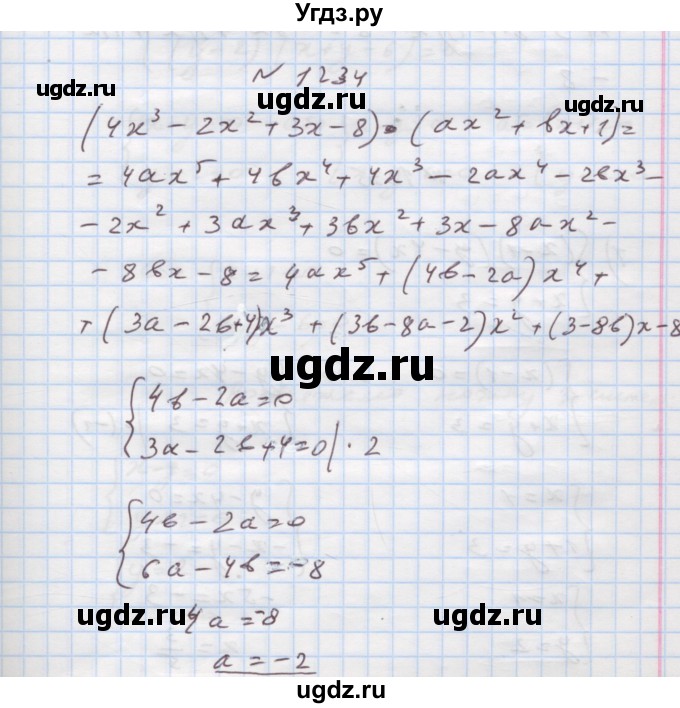 Угдз.ру
№ 1234
ugdz.ru ugdz.ru ugdz.ru
(4x³ - 2x² + 3x - 8) · (ax² + bx + 1) =
= 4ax⁵ + 4bx⁴ + 4x³ - 2ax⁴ - 2bx³ -
- 2x² + 3ax³ + 3bx² + 3x - 8ax² -
- 8bx - 8 = 4ax⁵ + (4b - 2a)x⁴ +
+ (3a - 2b + 4)x³ + (3b - 8a - 2)x² + (3 - 8b)x - 8
ugdz.ru ugdz.ru
{4b - 2a = 0
{3a - 2b + 4 = 0 | · 2
{4b - 2a = 0
{6a - 4b = -8
ugdz.ru ugdz.ru
4a = -8
a = -2
ugdz.ru